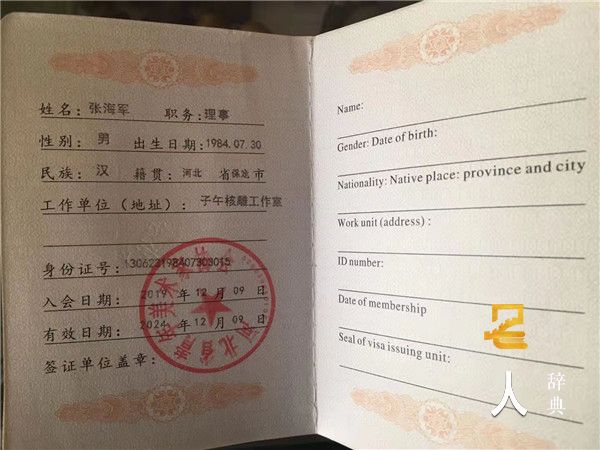 姓名：张海军 职务：理事
性别：男 出生日期：1984.07.30
民族：汉 籍贯：河北 省保定市
工作单位（地址）：子午核雕工作室
身份证号：130623198407303015
入会日期：2019 年 12 月 09 日
有效日期：2024 年 12 月 09 日
签证单位盖章：
Name:
Gender: Date of birth:
Nationality: Native place: province and city
Work unit (address) :
ID number:
Date of membership
Seal of visa issuing unit:
人
辞典